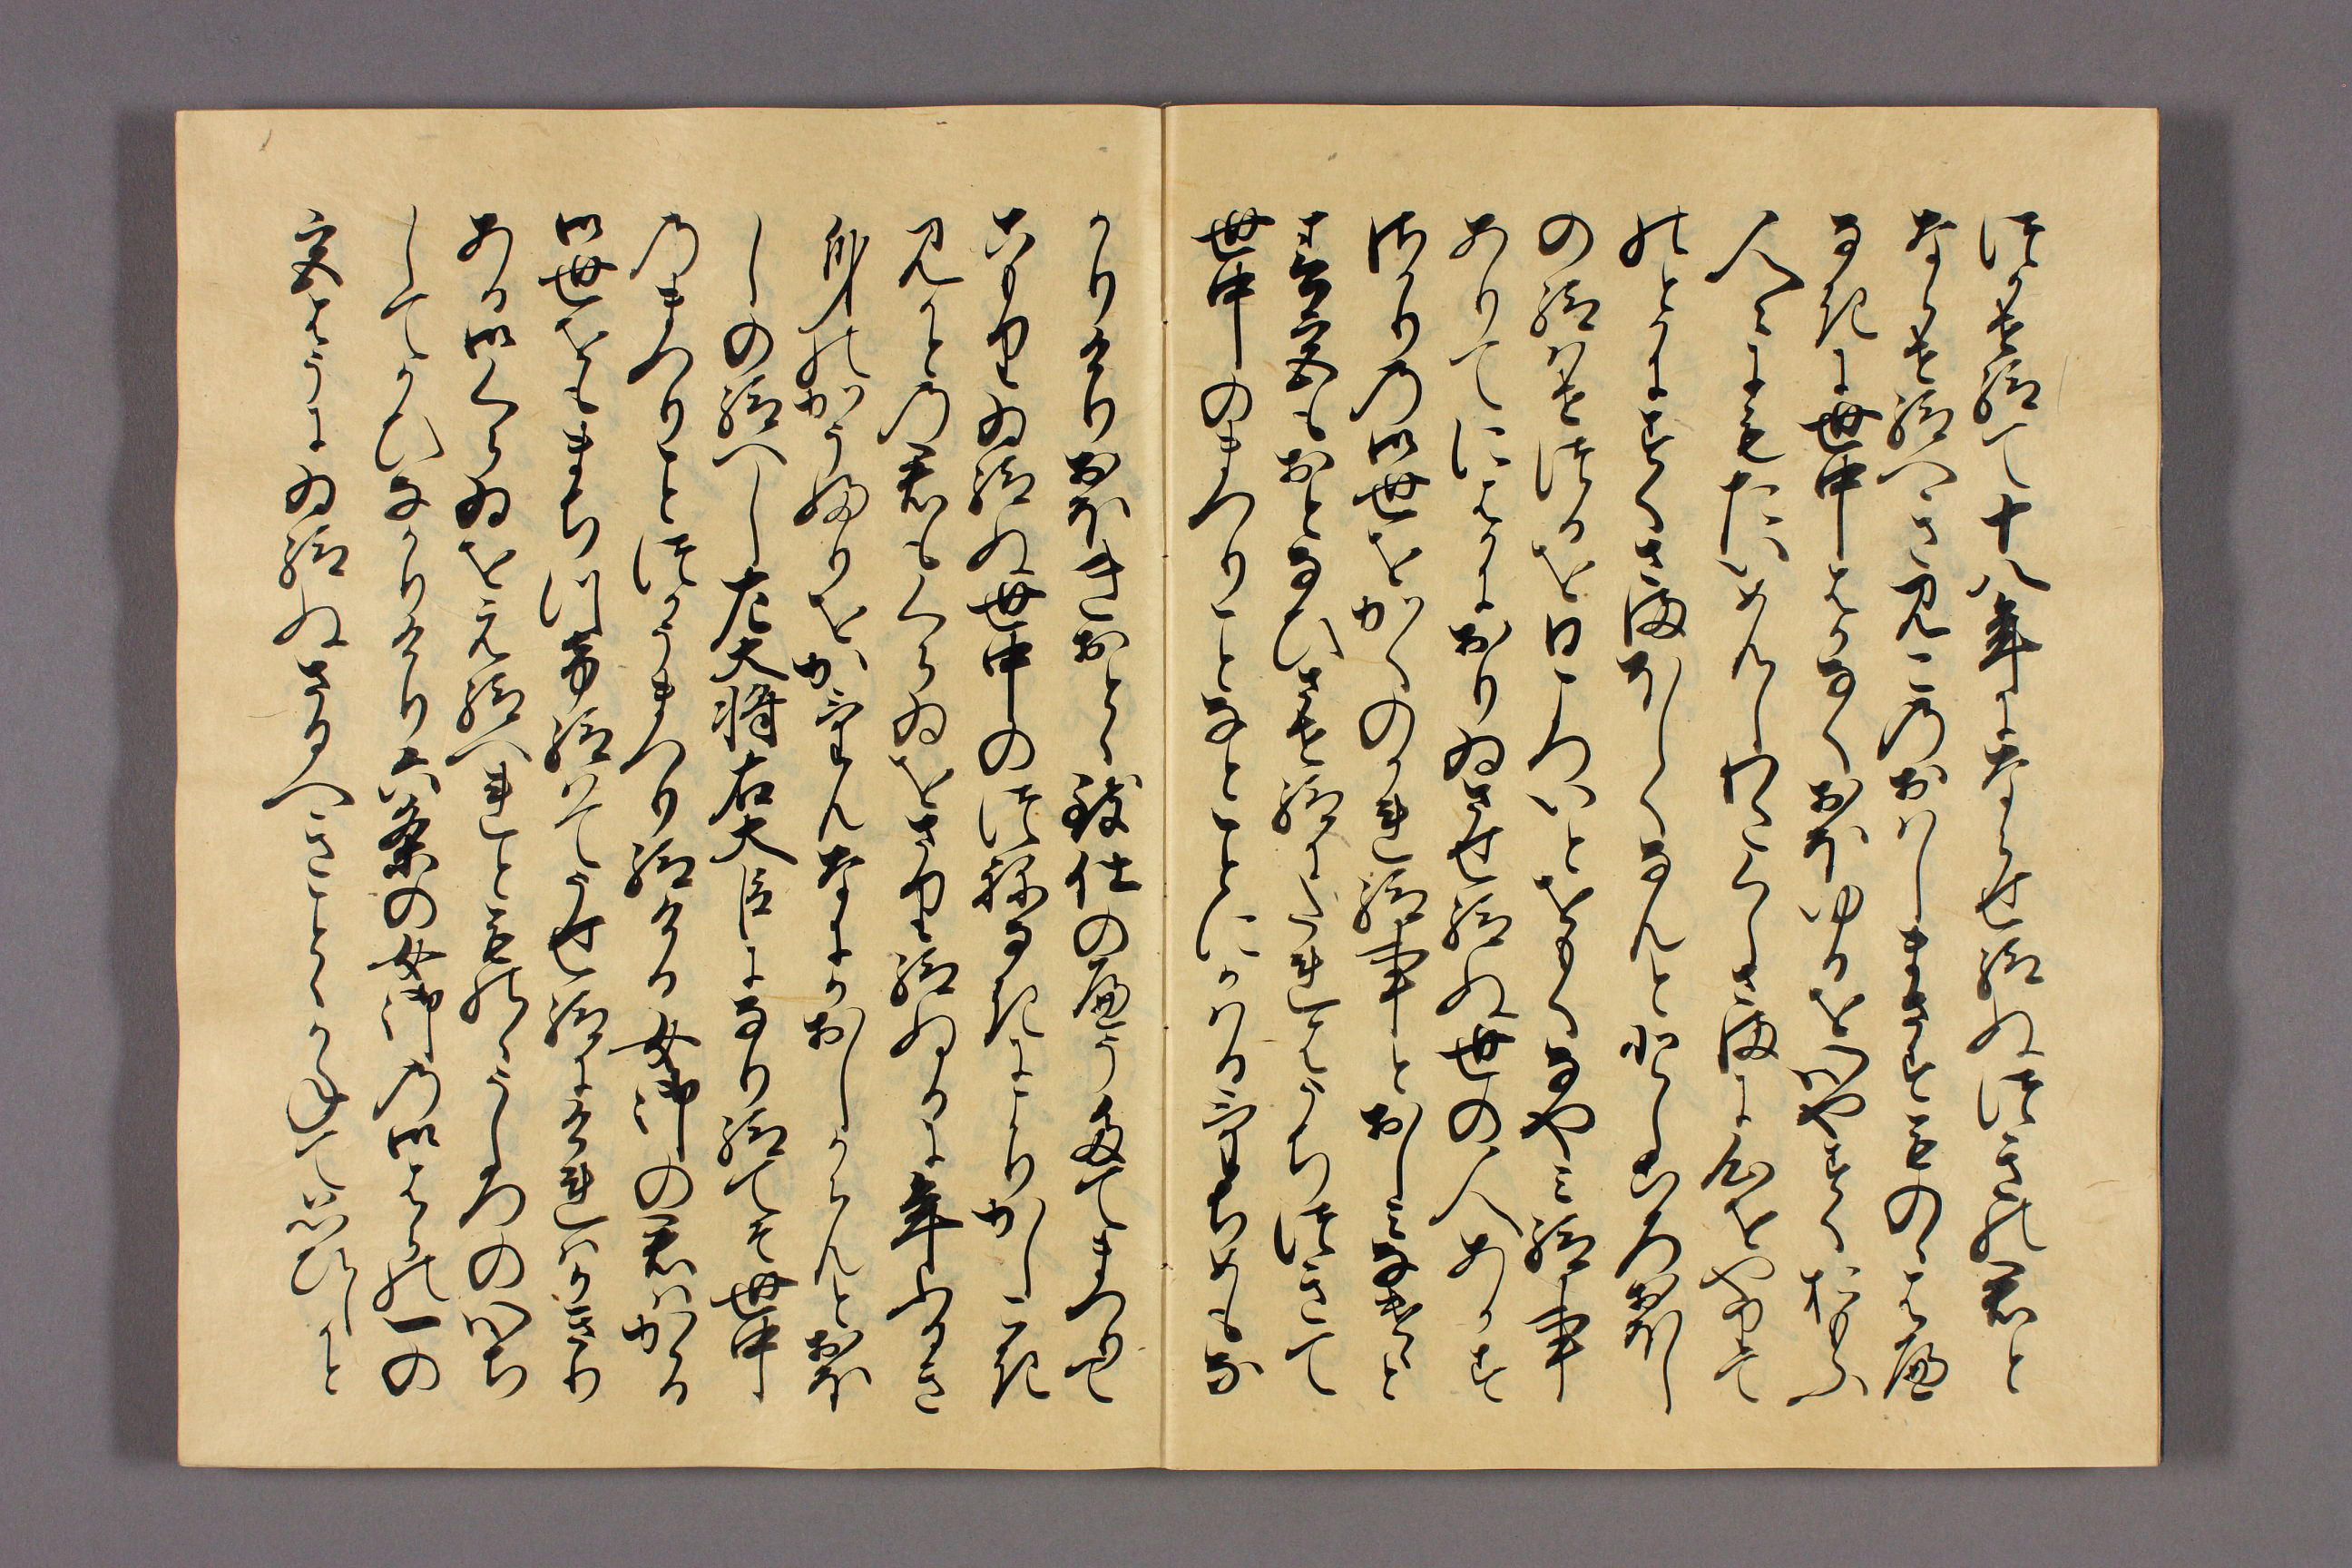 つかせ給て十八年にならせ給ぬつきの君と
ならせ給へきみこのおはしまさすものゝはへ
なきに世中はかなくおほゆるを心やすくおもふ
人々にもたいめんしわたくしさまに心をやりて
のとかにすくさまほしくなんと年ころおほし
の給はせつるを日ころいとをもくなやみ給事
ありてにはかにおりゐさせ給ぬ世の人あかす
さかりの御世をかくのかれ給事とおしみなけけと
春宮もおとなひさせ給にたれはうちつきて
世中のまつりことなとことにかはるけちめもな
かりけりおほきおとゝ致仕のへうたてまつりて
こもりゐ給ぬ世中のつねなきによりかしこき
みかとの君もくらゐをさり給ぬるに年ふかき
身のかうふりをかけんなにかおしからんとおほ
しの給へし左大将右大臣になり給てそ世中
のまつりことつかうまつり給ける女御の君はかゝる
御世をもまちつけ給はてうせ給にけれはかきり
ある御くらゐをえ給へれとものゝうしろの心ち
してかひなかりけり六条の女御の御はらの一の
宮はうにゐ給ぬさるへきことゝかねて思ひしかと